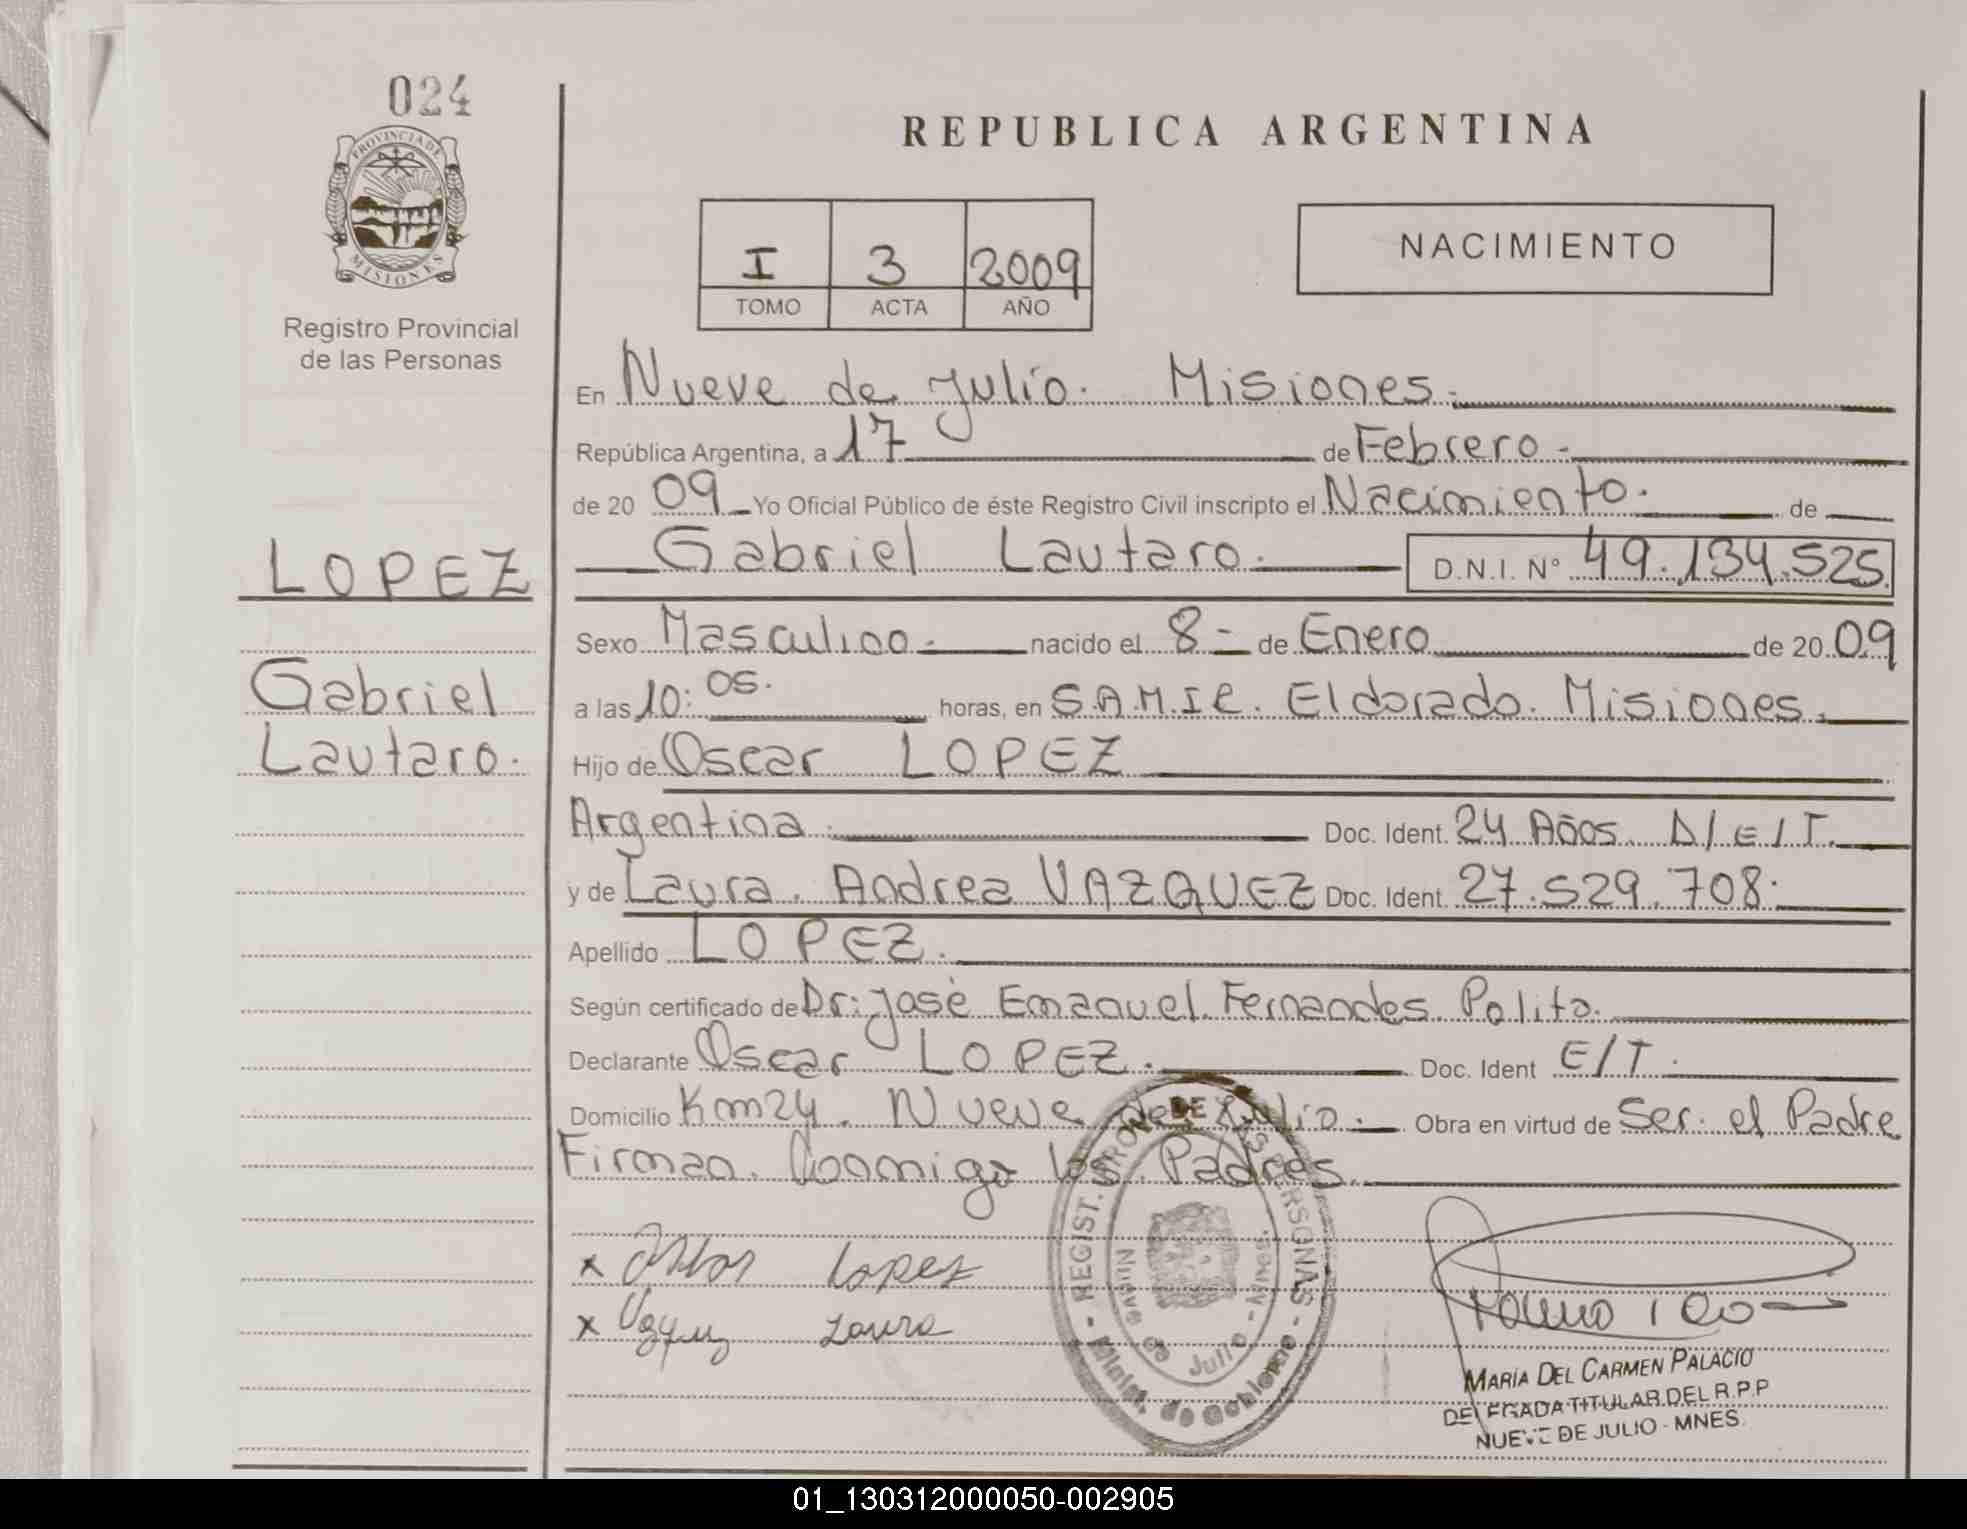 024
PROVINCIA DE
MISIONES
Registro Provincial
de las Personas
LOPEZ
Gabriel
Lautaro.
REPUBLICA ARGENTINA
I 3 2009
TOMO ACTA AÑO
NACIMIENTO
En Nueve de Julio. Misiones.
República Argentina, a 17 de Febrero.
de 20 09 Yo Oficial Público de éste Registro Civil inscripto el Nacimiento. de
Gabriel Lautaro. D.N.I. N° 49.134.525.
Sexo Masculino. nacido el 8 - de Enero de 20 09
a las 10: 05. horas, en S.A.M.I.C. Eldorado. Misiones.
Hijo de Oscar LOPEZ
Argentina. Doc. Ident. 24 Años. D/E/T.
y de Laura. Andrea VAZQUEZ Doc. Ident. 27.529.708.
Apellido LOPEZ.
Según certificado de Dr: José Emanuel. Fernandes. Polito.
Declarante Oscar LOPEZ. Doc. Ident E/T.
Domicilio Km 24. Nueve de Julio. Obra en virtud de Ser. el Padre
Firman. Conmigo los. Padres.
x Lopez
x Laura
REGIST. PROV. DE LAS PERSONAS
Nueve de Julio - Mnes.
Minist. de Gobierno
MARÍA DEL CARMEN PALACIO
DELEGADA TITULAR DEL R.P.P
NUEVE DE JULIO - MNES.
01_130312000050-002905